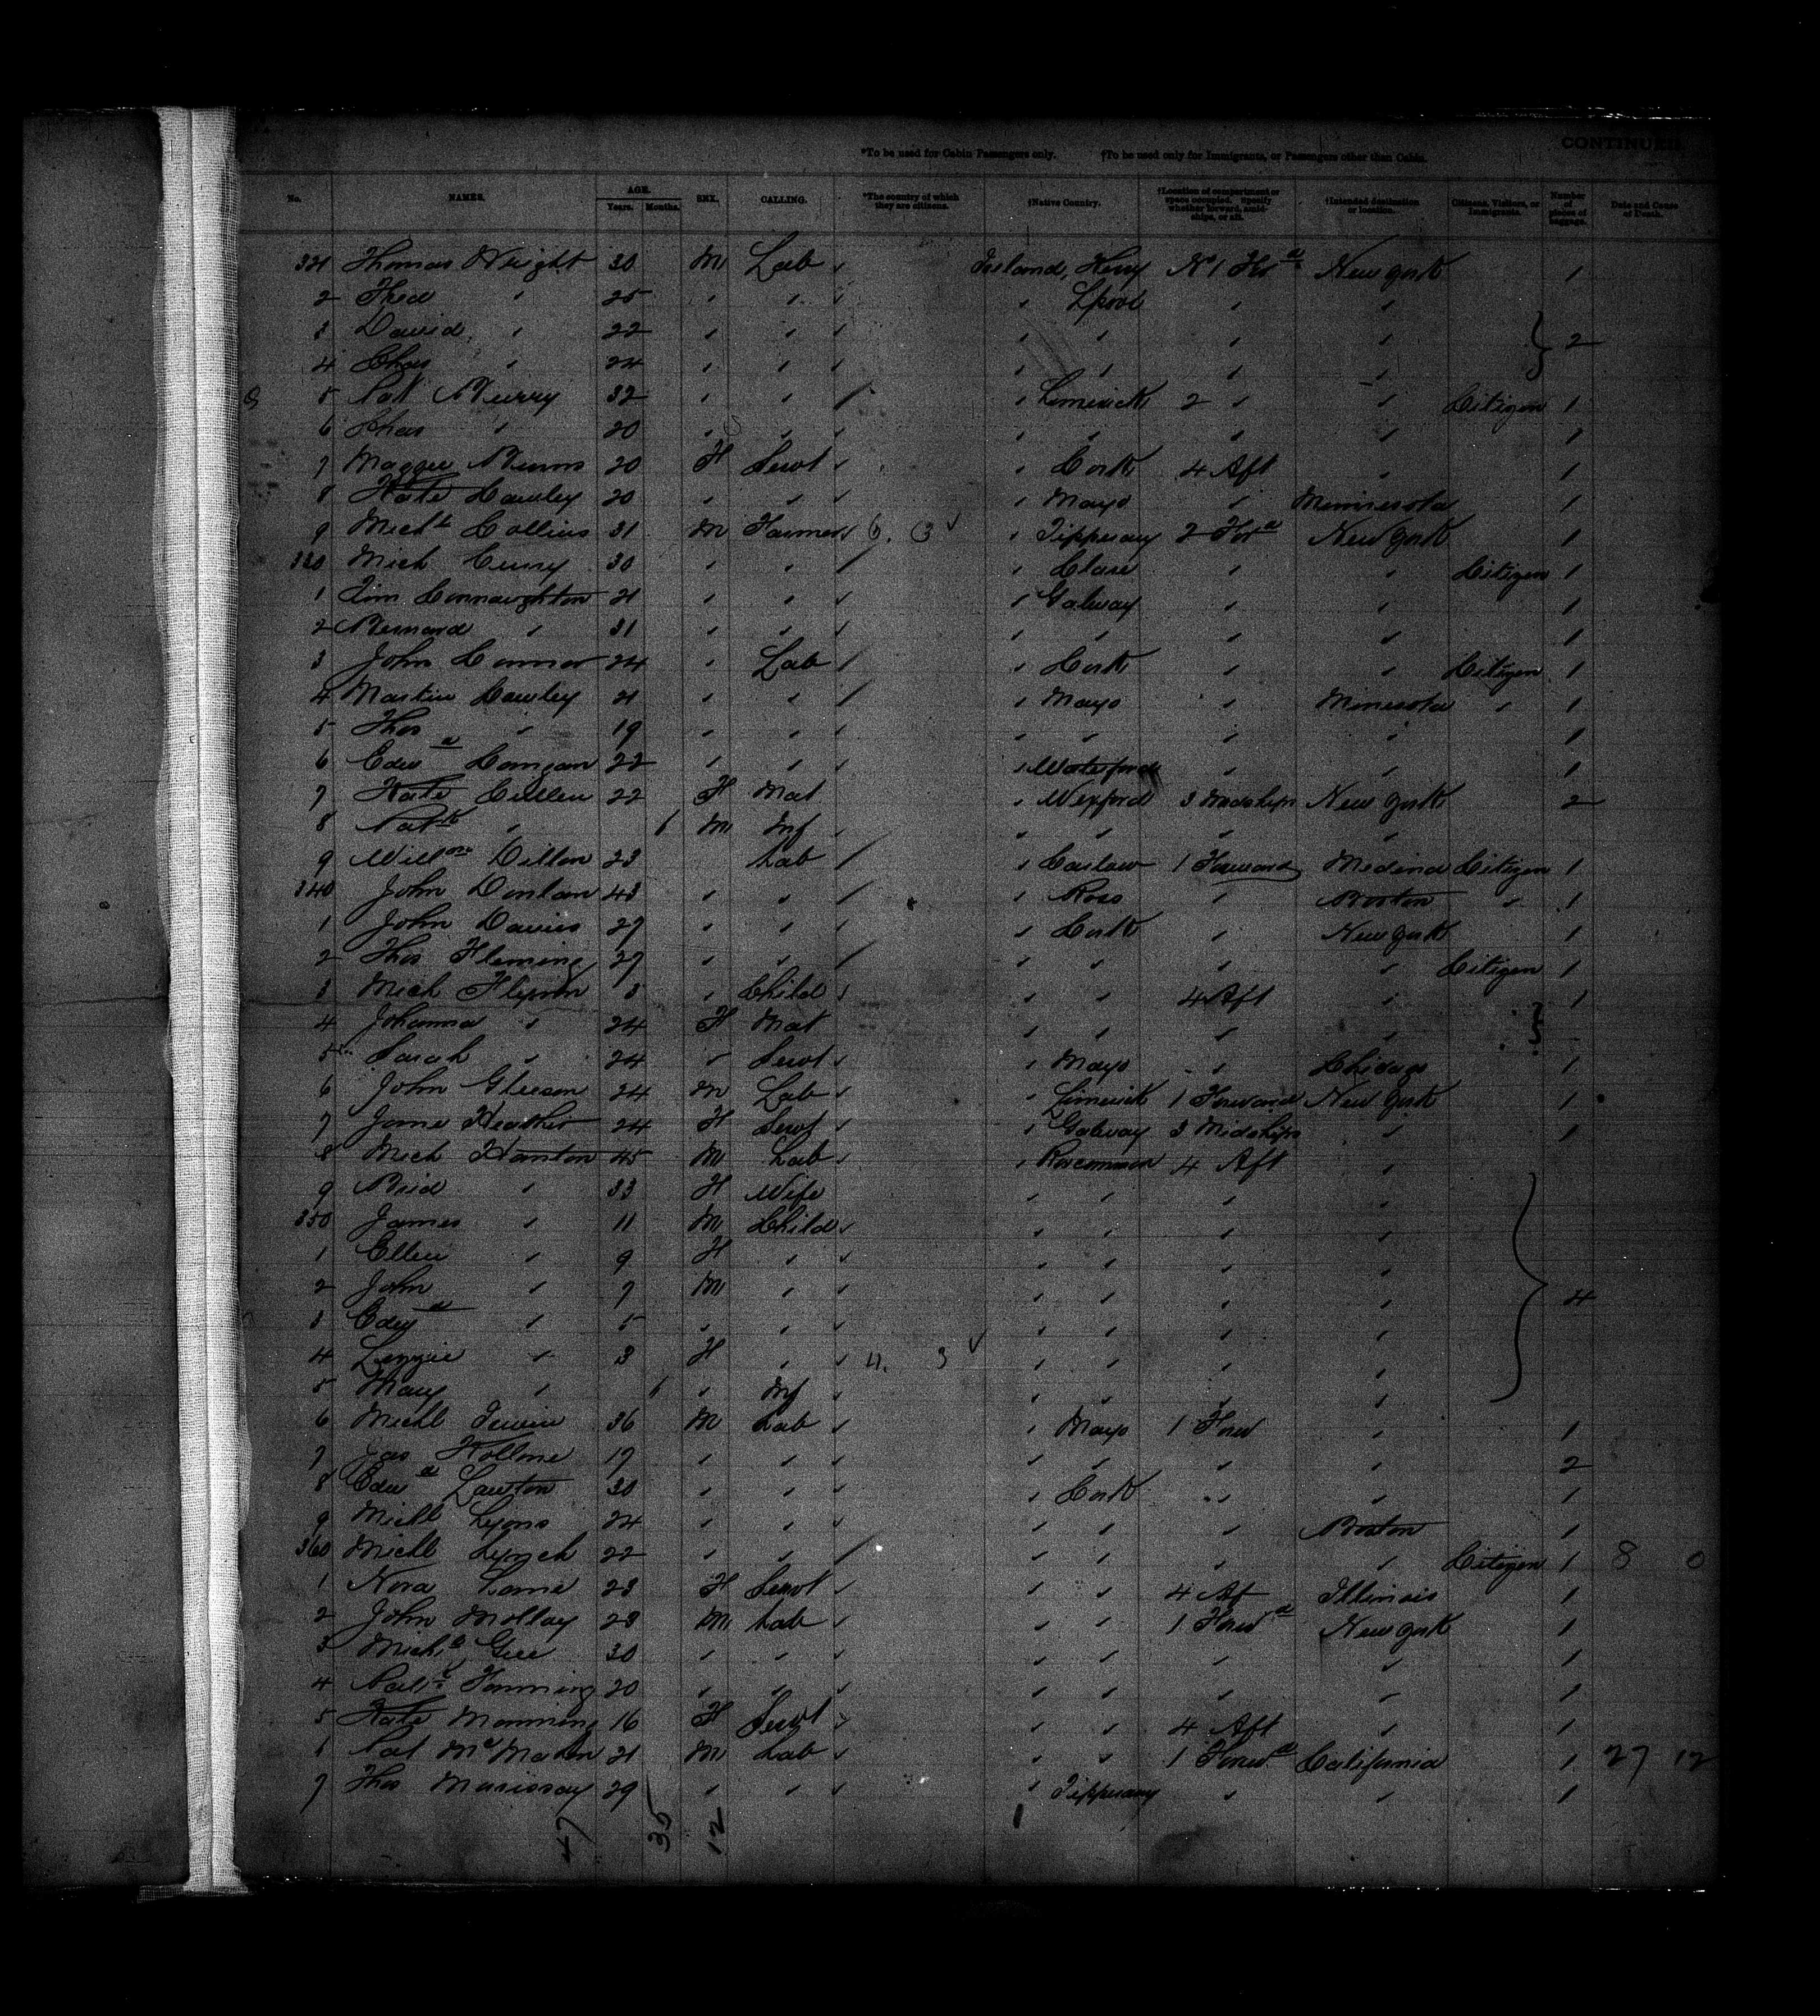 CONTINUED.
*To be used for Cabin Passengers only. †To be used only for Immigrants, or Passengers other than Cabin.
No. NAMES. AGE. Years. Months. SEX. CALLING. *The country of which they are citizens. †Native Country. †Location of compartment or space occupied. Specify whether forward, amidships, or aft. †Intended destination or location. Citizens, Visitors, or Immigrants. Number of pieces of baggage. Date and Cause of Death.
321 Thomas Wright 30 M Lab Ireland, Kerry No 1 For^d New York 1
2 Fred " 25 " " " Lpool " "
3 David " 22 " " " " " " } 2
4 Chas " 24 " " " " " "
5 Pat Murry 32 " " " Limerick 2 " " Citizen 1
6 " 20 " " " " " " 1
7 Maggie 20 F Servt " Cork 4 Aft " 1
8 Kate Cawley 20 " " " Mayo " Minnesota 1
9 Mich^l Collins 31 M Farmer 6. 3 " Tipperary 2 For^d New York 1
330 Mich 30 " " " Clare " " Citizen 1
1 Tim Connaughton 21 " " " Galway " " 1
2 Bernard " 31 " " " " " " 1
3 John Connor 24 " Lab " Cork " " Citizen 1
4 Martin Cawley 21 " " " Mayo " Minesota " 1
5 Thos " 19 " " " " " " 1
6 Edw^d 22 " " " Waterford " " 1
7 Kate Cullen 22 F Mat " Wexford 3 Midships New York 2
8 Pat^k " 6 M Inf " " " "
9 Will^m Dillon 23 Lab " Carlow 1 Forward Medina Citizen 1
340 John Donlan 43 " " " Ross " Boston " 1
1 John Davies 27 " " " Cork " New York 1
2 Thos Fleming 27 " " " " " " Citizen 1
3 Mich Flynn 3 " Child " " 4 Aft " 1
4 Johanna " 24 F Mat " " " " }
5 Sarah " 24 " Servt " Mayo " Chicago 1
6 John Gleeson 24 M Lab " Limerick 1 Forward New York 1
7 Jane 24 F Servt " Galway 3 Midships " 1
8 Mich Hanton 45 M Lab " Roscommon 4 Aft "
9 Brid " 33 F Wife " " " "
350 James " 11 M Child " " " "
1 Ellen " 9 F " " " " "
2 John " 7 M " " " " " } 4
3 Edw^d " 5 " " " " " "
4 Lizzie " 3 F " 4. 3 " " " "
5 Mary " 6 " Inf " " " "
6 Michl Irwin 36 M Lab " Mayo 1 Forw " 1
7 Jas 19 " " " " " " 2
8 Edw^d Lawton 30 " " " Cork " " 1
9 Michl Lyons 24 " " " " " Boston 1
360 Michl Lynch 22 " " " " " " Citizen 1 8 0
1 Nora 23 F Servt " " 4 Af Illinois 1
2 John Molloy 23 M Lab " " 1 Forw^d New York 1
3 Mich^l 30 " " " " " " 1
4 20 " " " " " " 1
5 Kate Manning 16 F Servt " " 4 Aft " 1
6 Pat McMahon 21 M Lab " " 1 Forw^d California 1 27 12
7 Thos 29 " " " Tipperary " " 1
47 35 12 1